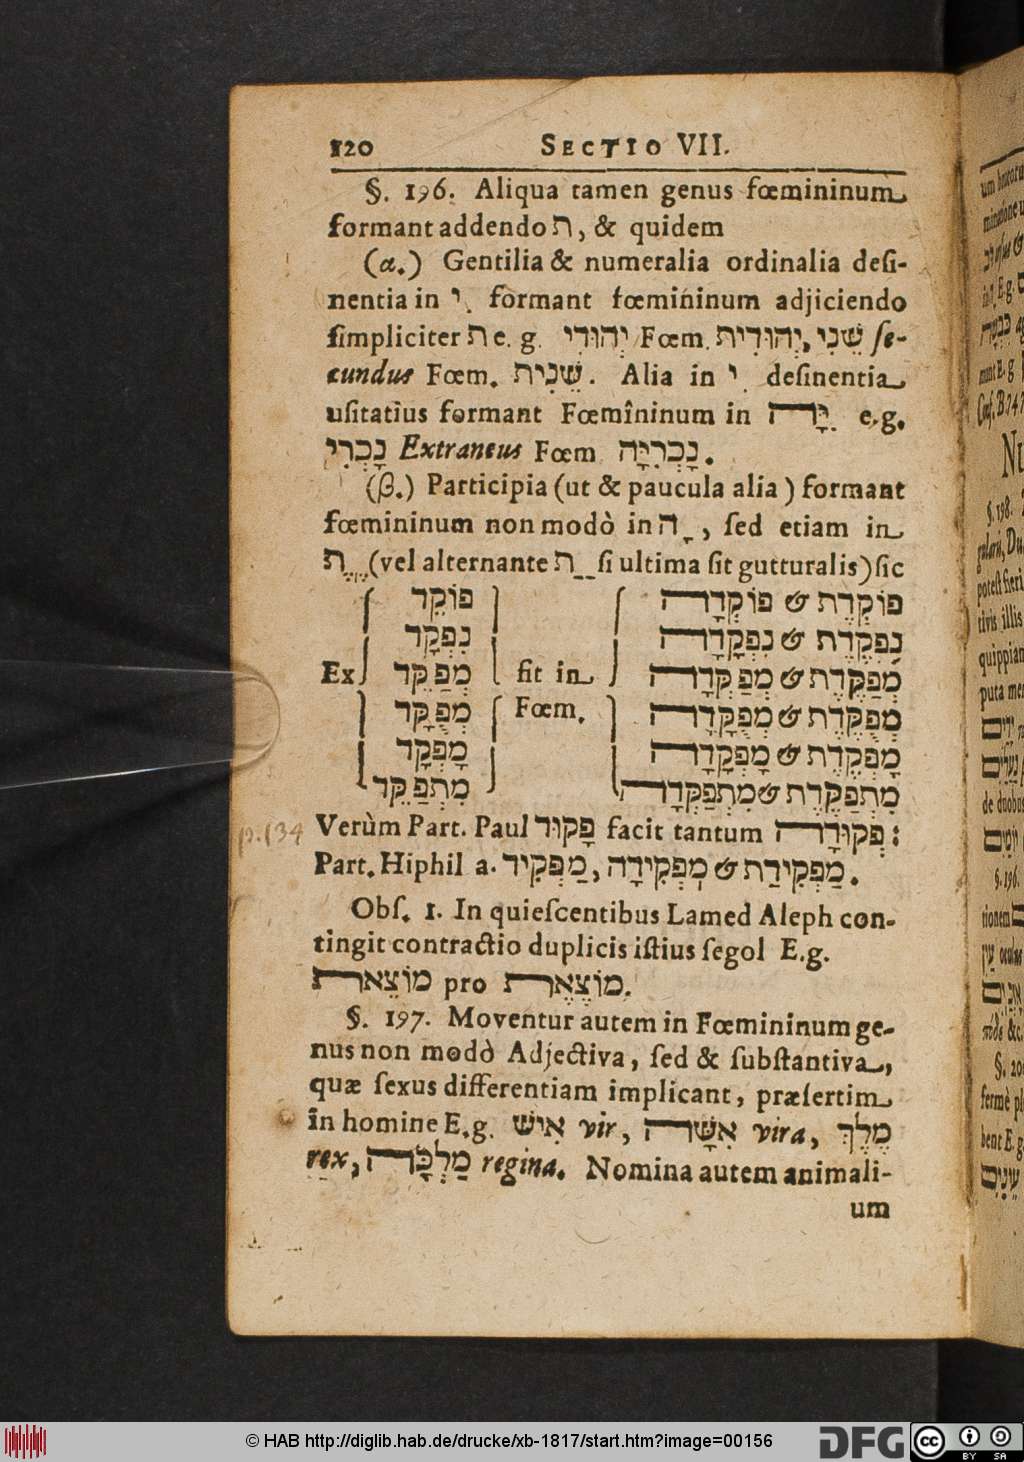 120 SECTIO VII.
§. 196. Aliqua tamen genus fœmininum
formant addendo ת, & quidem
(α.) Gentilia & numeralia ordinalia deſi-
nentia in יִ formant fœmininum adjiciendo
ſimpliciter ת e. g. יְהוּדִי Fœm. יְהוּדִית, שֵׁנִי ſe-
cundus Fœm. שֵׁנִית. Alia in יִ deſinentia
uſitatiùs formant Fœmîninum in יָּה e.g.
נָכְרִי Extraneus Fœm נָכְרִיָּה.
(β.) Participia (ut & paucula alia) formant
fœmininum non modò in הָ, ſed etiam in
ֶֶת (vel alternante ַַת ſi ultima ſit gutturalis) ſic
פוֹקֵד פוֹקְדָה & פוֹקֶדֶת
נִפְקָד נִפְקָדָה & נִפְקֶדֶת
Ex מְפַקֵּד fit in מְפַקְּדָה & מְפַקֶּדֶת
מְפֻקָּד Fœm. מְפֻקָּדָה & מְפֻקֶּדֶת
מָפְקָד מָפְקָדָה & מָפְקֶדֶת
מִתְפַּקֵּד מִתְפַּקְּדָה & מִתְפַּקֶּדֶת
Verùm Part. Paul פָּקוּד facit tantum פְּקוּדָה:
Part. Hiphil a. מַפְקִיד, מַפְקִידָה & מַפְקִידַת.
Obſ. 1. In quieſcentibus Lamed Aleph con-
tingit contractio duplicis iſtius ſegol E.g.
מוֹצֵאת pro מוֹצֶאֶת.
§. 197. Moventur autem in Fœmininum ge-
nus non modò Adjectiva, ſed & ſubſtantiva,
quæ ſexus differentiam implicant, præſertim
in homine E.g. אִישׁ vir, אִשָּׁה vira, מֶלֶךְ
rex, מַלְכָּה regina. Nomina autem animali-
um
p. 134
© HAB http://diglib.hab.de/drucke/xb-1817/start.htm?image=00156
DFG
cc BY SA